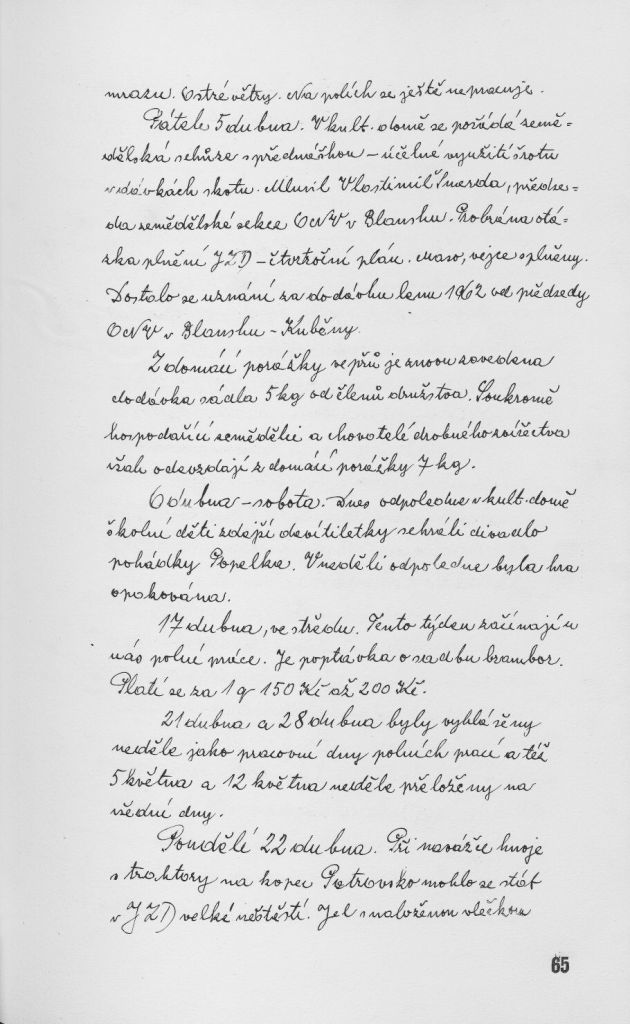 mrazu. Ostré větry. Na polích se ještě nepracuje.
Pátek 5 dubna. V kult. domě se pořádá země-
dělská schůze s přednáškou – účelné využití šrotu
v dávkách skotu. Mluvil Vlastimil , předse-
da zemědělské sekce ONV v Blansku. Probrána otá-
zka plnění JZD – čtvrtroční plán. Maso, vejce splněny.
Dostalo se uznání za dodávku lenu 1962 od předsedy
ONV v Blansku – Kuběny.
Z domácí porážky vepřů je znovu zavedena
dodávka sádla 5 kg od členů družstva. Soukromě
hospodařící zemědělci a chovatelé drobného zvířectva
však odevzdají z domácí porážky 7 kg.
6 dubna – sobota. Dnes odpoledne v kult. domě
školní děti zdejší devítiletky sehráli divadlo
pohádky Popelka. V neděli odpoledne byla hra
opakována.
17 dubna, ve středu. Tento týden začínají u
nás polní práce. Je poptávka o sadbu brambor.
Platí se za 1 q 150 Kč až 200 Kč.
21 dubna a 28 dubna byly vyhlášeny
neděle jako pracovní dny polních prací a též
5 května a 12 května neděle přeloženy na
všední dny.
Pondělí 22 dubna. Při navážce hnoje
s traktory na kopec Petrovsko mohlo se stát
v JZD velké neštěstí. Jel s naloženou vlečkou
65